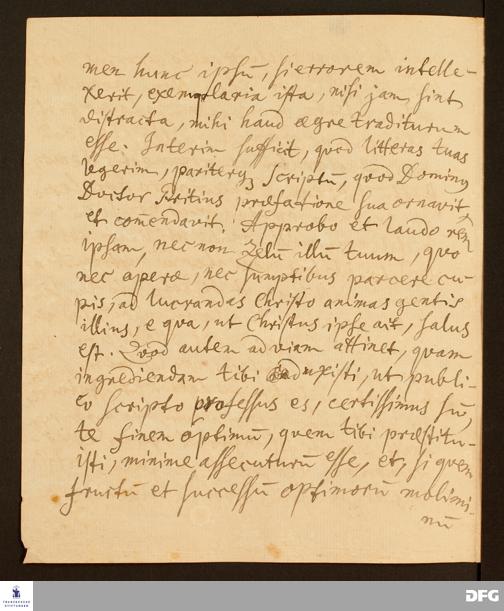 men hunc ipsū, si errorem intelle-
xerit, exemplaria ista, nisi jam sint
distracta, mihi haud ægre traditurum
esse. Interim sufficit, quod litteras tuas
legerim, pariterq; scriptū, quod Dominus
Doctor Fritius præfatione sua ornavit
et com̄endavit. Approbo et laudo rem
ipsam, nec non Zelū illū tuum, quo
nec operæ, nec sumptibus parcere cu-
pis, ad lucrandas Christo animas gentis
illius, e qua, ut Christus ipse ait, salus
est. Quod autem ad viam attinet, quam
ingrediendam tibi duxisti, ut publi-
co scripto professus es, certissimus sū,
te finem optimū, quem tibi præstitu-
isti, minime assecuturū esse, et, si quem
fructū et successū optimorū molimi-
nū
FRANCKESCHE STIFTUNGEN
DFG